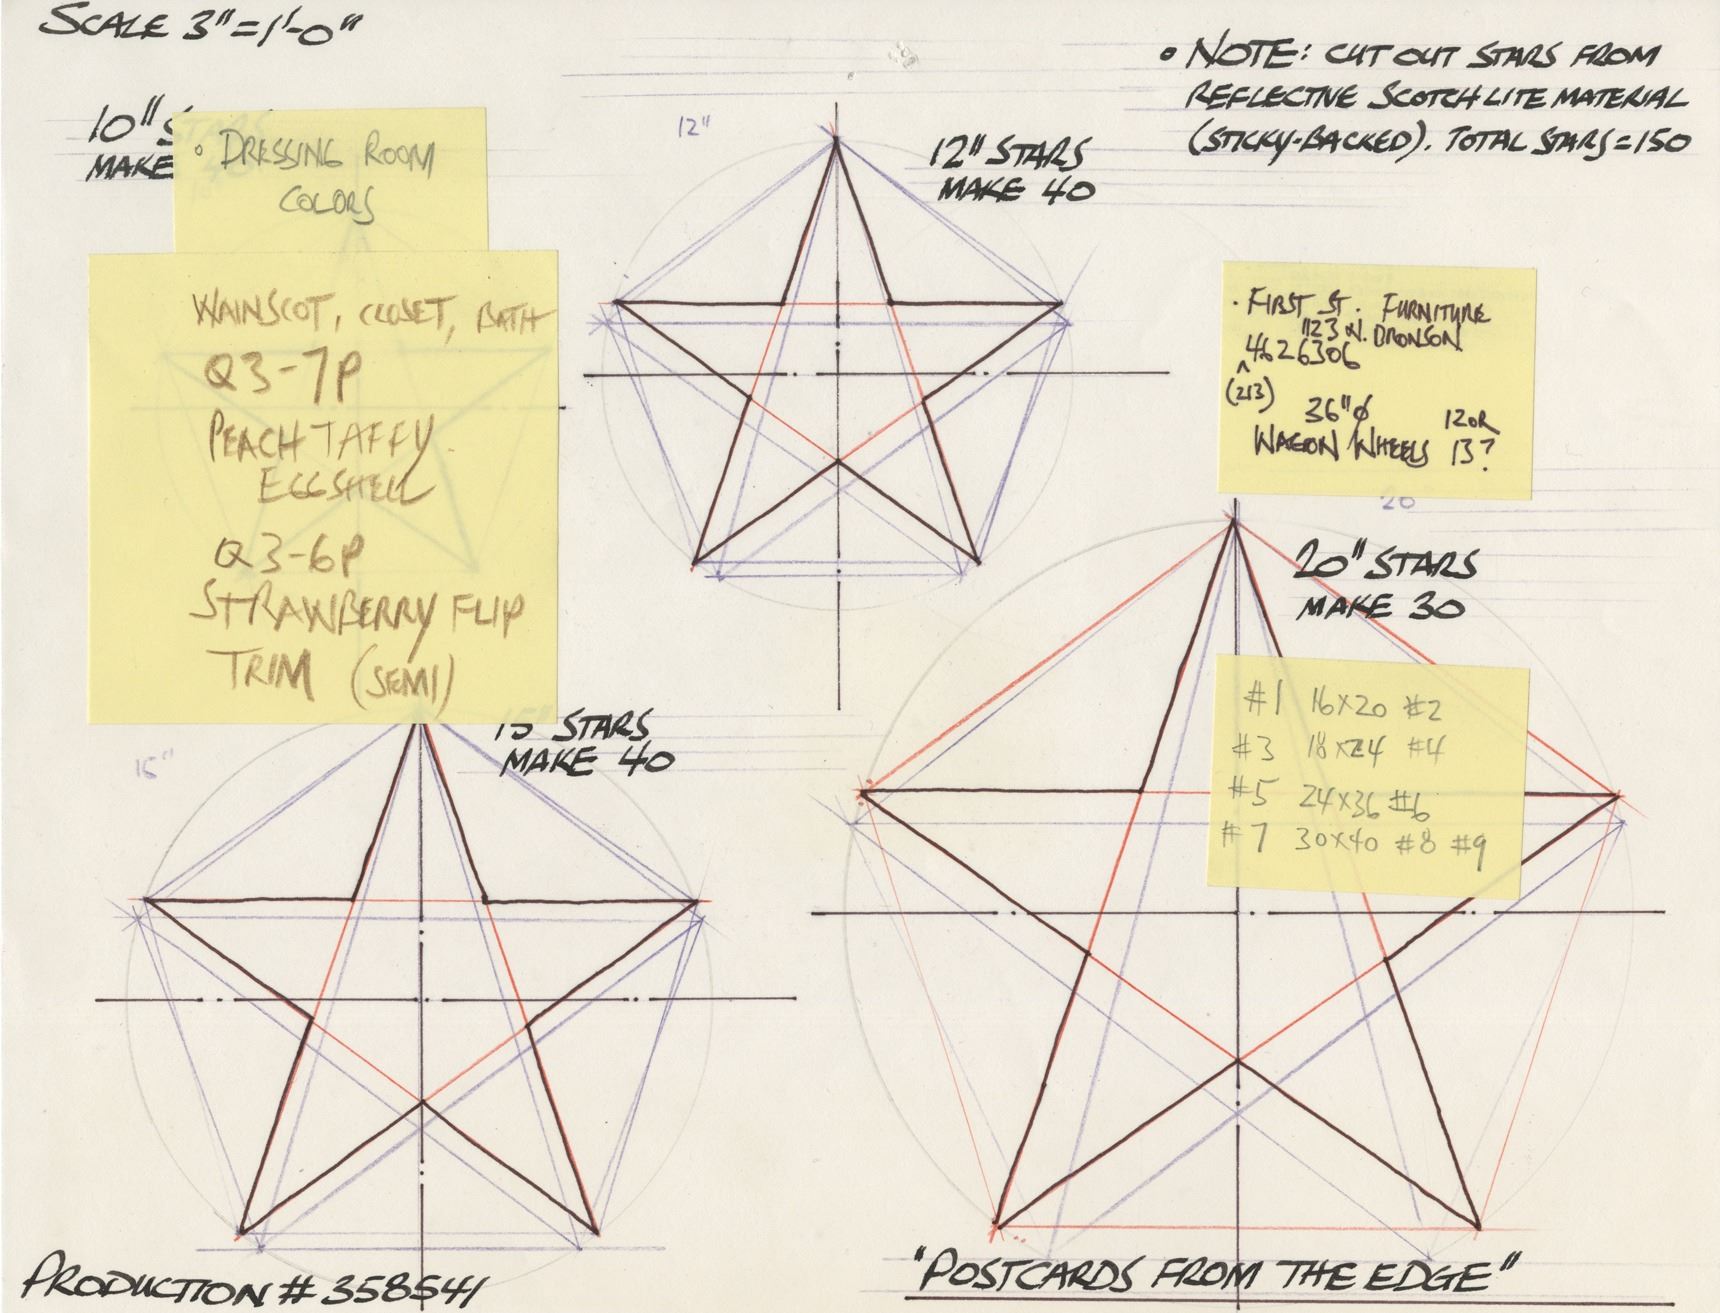 SCALE 3"=1'-0"
• NOTE: CUT OUT STARS FROM
REFLECTIVE SCOTCHLITE MATERIAL
(STICKY-BACKED). TOTAL STARS=150
10" S
MAKE
• DRESSING ROOM
COLORS
WAINSCOT, CLOSET, BATH
Q3-7P
PEACH TAFFY
EGGSHELL
Q3-6P
STRAWBERRY FLIP
TRIM (SEMI)
12"
12" STARS
MAKE 40
• FIRST ST. FURNITURE
1123 N. BRONSON
4626306
^
(213)
36"φ 12 OR
WAGON WHEELS 13?
20"
20" STARS
MAKE 30
#1 16X20 #2
#3 18X24 #4
#5 24X36 #6
#7 30X40 #8 #9
15"
15" STARS
MAKE 40
PRODUCTION # 358541
"POSTCARDS FROM THE EDGE"